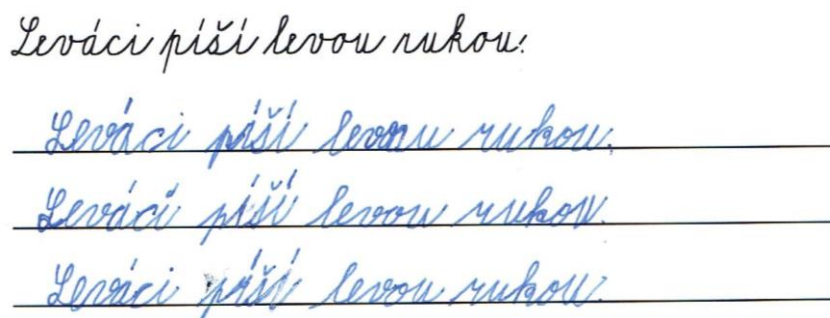 Leváci píší levou rukou.
Leváci píší levou rukou.
Leváci píší levou rukou.
Leváci píší levou rukou.